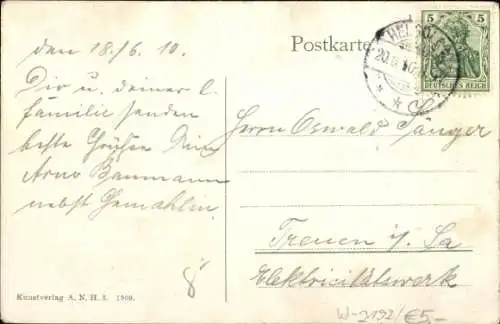 den 18./6. 10.
Dir u. deiner l.
Familie senden
beste Grüßen Dein
Arno Baumann
nebst Gemahlin.
Kunstverlag A. N. H. S. 1909.
Postkarte
5 5
DEUTSCHES REICH
20.6.10
Herrn Oswald Sanger
Treuen i. Sa
Elektricitätswerk
W-2192/€5,-